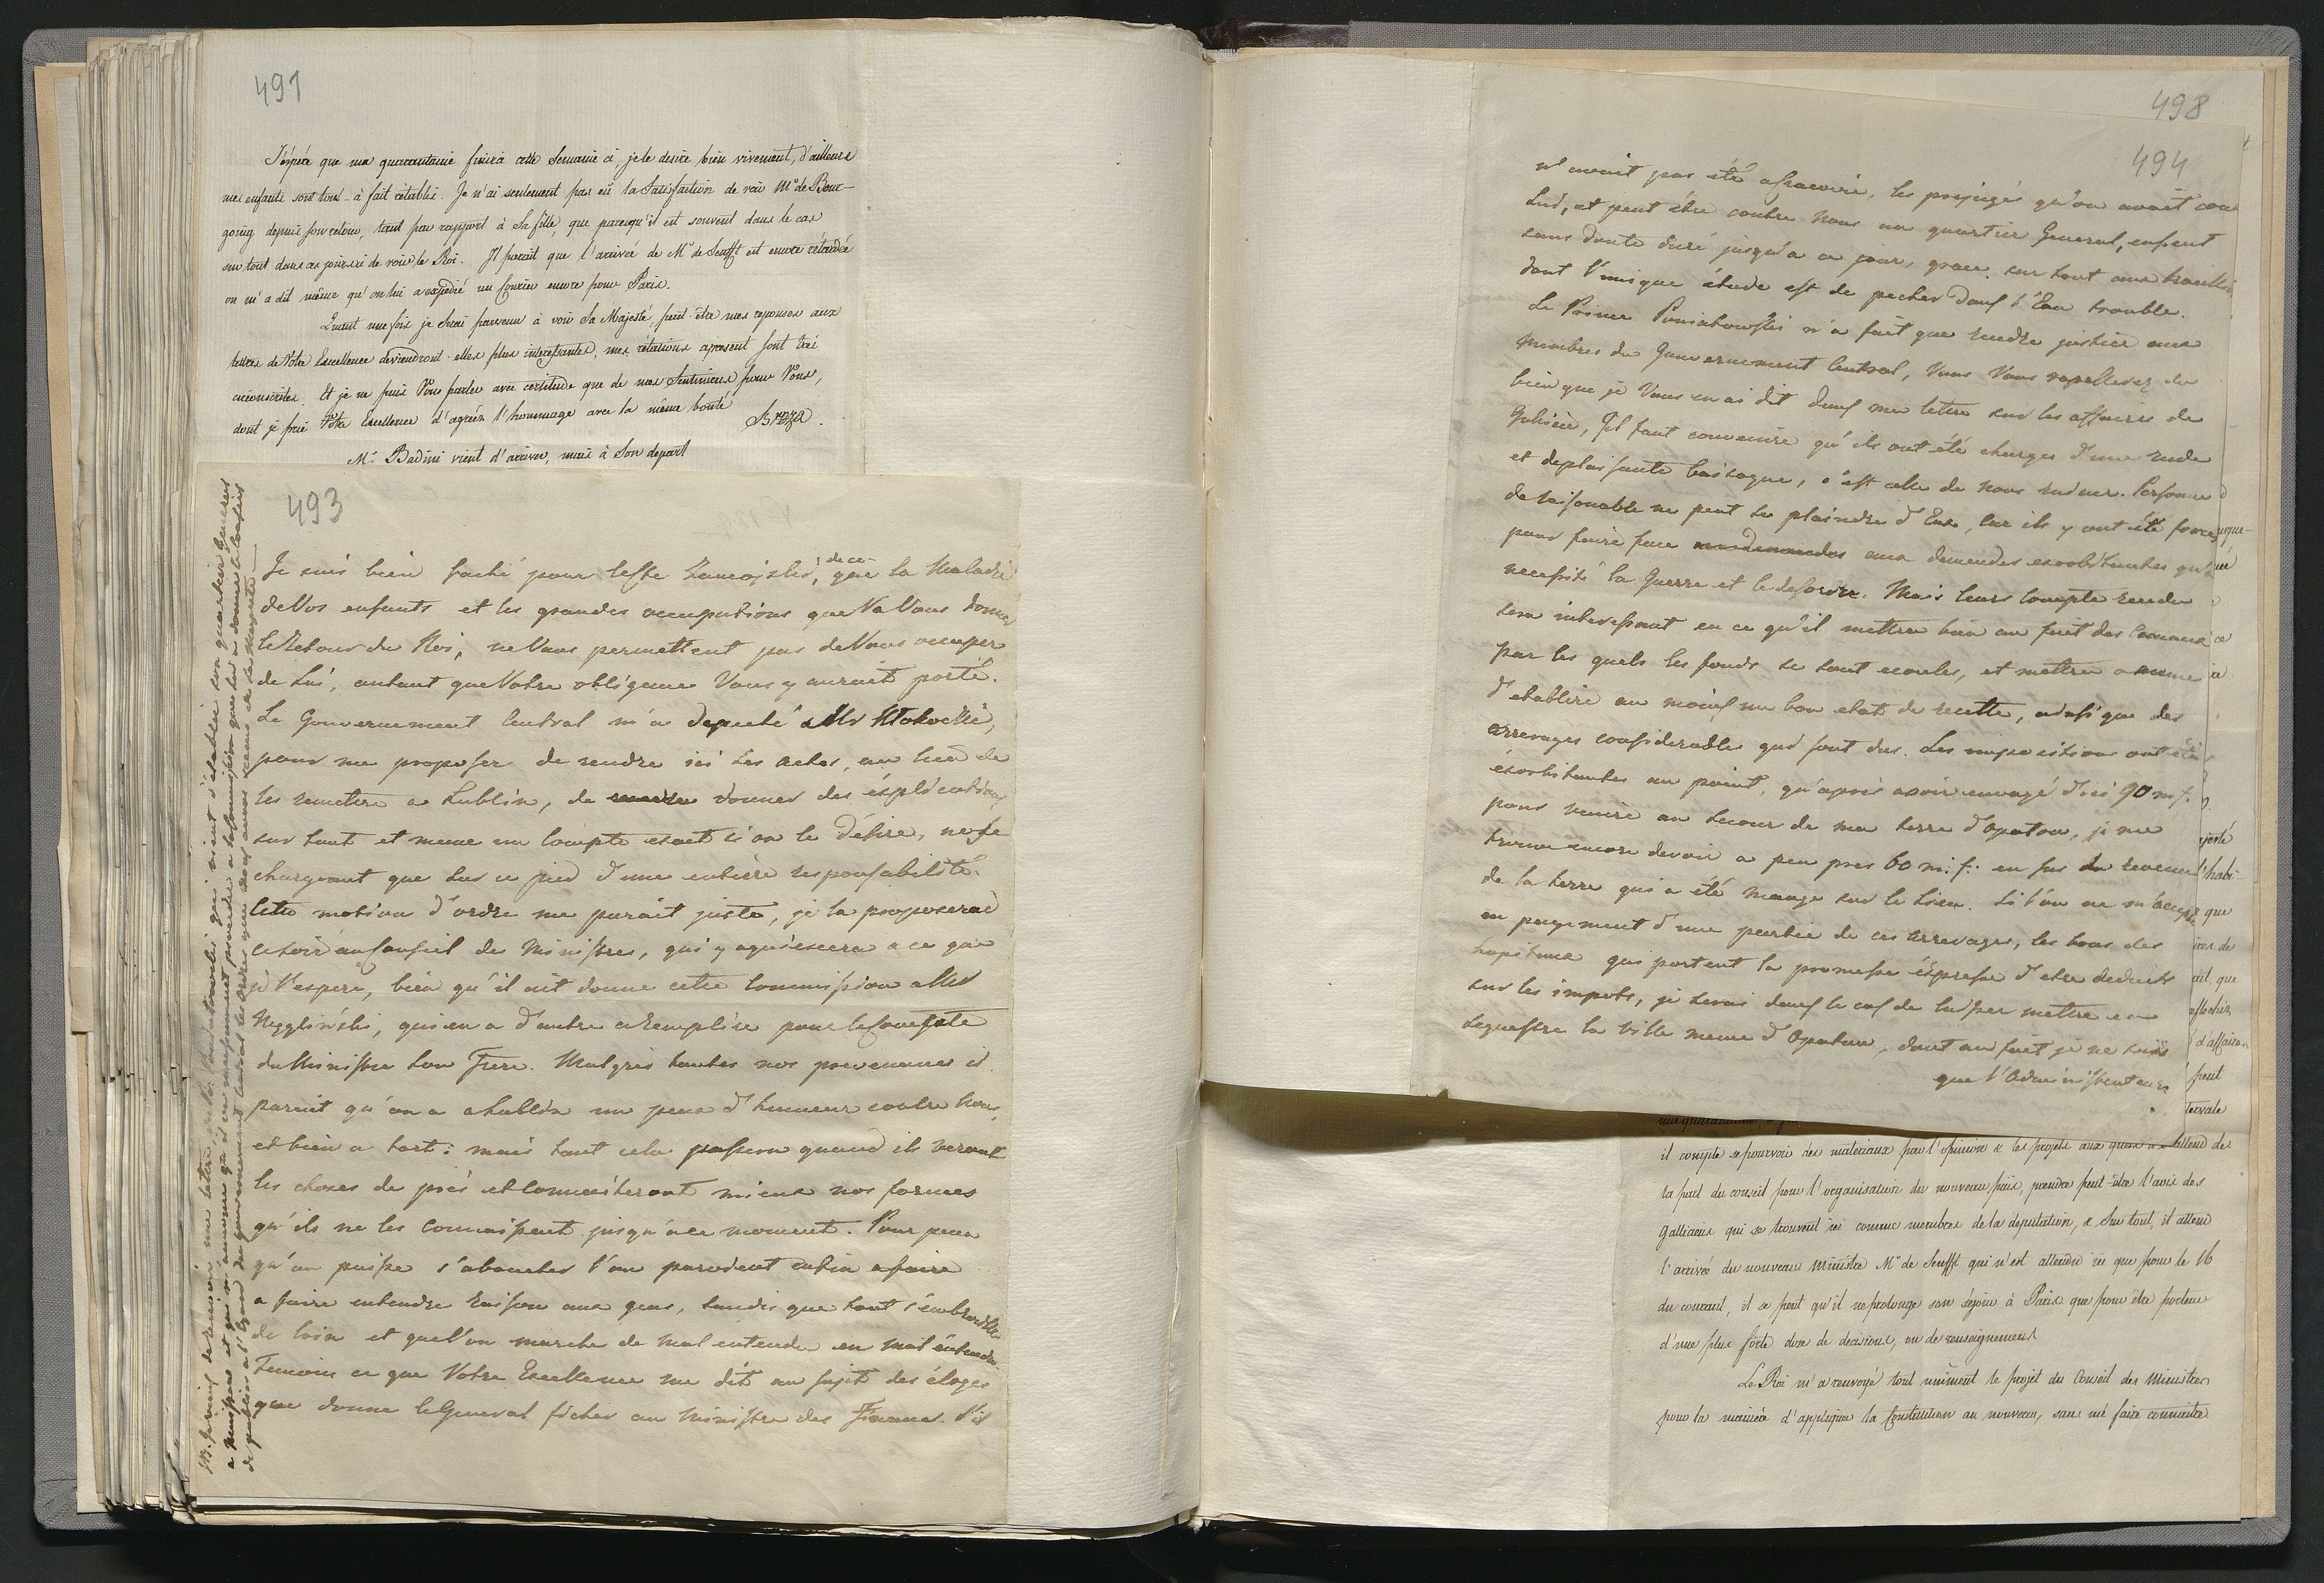 491
J'espère que ma quarantaine finira cette Semaine ci, je le desire bien vivement, d'ailleurs
mes enfants sont tout-à fait rétablis. Je n'ai seulement pas eû la Satisfaction de voir Mr de Bour-
going depuis son retour, tant par rapport à Sa fille, que parcequ'il est souvent dans le cas
sur tout dans ces jours ci de voir le Roi. Il parait que l'arrivée de Mr de Senfft est encore retardée
on m'a dit même qu'on lui a expedié un Courier encore pour Paris.
Quant une fois je serai parvenu à voir Sa Majesté, peut-être mes reponses aux
lettres de Votre Excellence deviendront-elles plus interessantes, mes rélations apresent sont trés
circonscrites. Et je ne puis Vous parler avec certitude que de mes Sentimens pour Vous,
dont je prie Votre Excellence d'agréer l'hommage avec la même bonté
Breza.
Mr. Badini vient d'arriver, mais à Son depart
493
Je suis bien faché pour le Cte Zamoiski, de ce que la Maladie
de Vos enfants et les grandes occupations que Va Vous donner
le Retour du Roi, ne Vous permettent pas de Vous occuper
de Lui, autant que Votre obligence Vous y aurait porté.
Le Gouvernement Central m'a deputé Mr
pour me proposer de rendre ici ses actes, au lieu de
les remetre a Lublin, de donner des explications
sur tout et meme un Compte exact si on le désire, ne se
chargeant que sur ce pied d'une entière responsabilité.
Cette motion d'ordre me parait juste, je la proposerai
ce soir au Conseil des Ministres, qui y aquiescera a ce que
je l'espere, bien qu'il ait donné cette Commission a Mr
qui en a d'autre a Remplire pour le
du Ministre Son Frere. Malgrés toutes nos prevenances il
parait qu'on a a Lublin un peu d'humeur contre Nous,
et bien a tort: mais tout cela passera quand ils verront
les choses de près et Connaiteront mieux nos formes
qu'ils ne les connaissent jusqu'a ce moment. Pour peu
qu'on puisse s'aboucher l'on parvient enfin a faire
a faire entendre raison aux gens, tandis que tout s'embrouille
de loin et que l'on marche de mal entendu en mal entendu.
Temoin ce que Votre Excellence me dit au sujet des éloges
que donne le General ficher au Ministre des Finances. S'il
498
494
n' avait pas été les prejugés qu'on avait
et peut être contre Nous au quartier General, eussent
sans doute duré jusqu'a ce jour, grace sur tout aux
dont l'unique étude est de pecher dans l'Eau trouble.
Le Prince Poniatowski n'a fait que rendre justice aux
Membres du Gouvernement Central, Vous Vous rapellerez du
bien que je Vous en ai dit dans ma lettre sur les affaires de
Galicie, Il faut convenire qu'ils ont été charges d'une rude
et deplaisante besogne, c'est celle de nous ruiner. Personne
de raisonable ne peut se plaindre d'Eux, car ils y ont été forcés
pour faire face aux demandes exorbitantes qu'a
necessité la Guerre et le desordre. Mais leurs Compte rendu
sera interessant en ce qu'il mettra bien au fait des Canaux
par les quels les fonds se sont ecoulés, et mettra a meme
d'etablire au moins un bon etat de recette, ainsi que des
arrerages considerables qui sont dus. Les impositions ont été
exorbitantes au point, qu'après avoir envoyé d'ici 90 m f.
pour venire au Secour de ma terre d'Opatow, je me
trouve encore devoir a peu pres 60 m: f: en sus du revenu
de la terre qui a été mangé sur le lieu. Si l'on ne m'accepte
en payement d'une partie de ces arrerages, les bons des
hopitaux qui portent la promesse expresse d'etre deduits
sur les impots, je serais dans le cas de laisser mettre en
Sequestre la Ville meme d'Opatow, dont au fait je ne suis
que l'Administrateur
il compte se pourvoir des materiaux par l'opinion & les projets aux quels il s'attend de
la part du conseil pour l'organisation du nouveau païs, prendre peut-être l'avis des
Galliciens qui se trouvent ici comme membres de la deputation, & Sur tout, il attend
l'arrivée du nouveau Ministre Mr de Senfft qui n'est attendu ici que pour le 16
du courant, il se peut qu'il ne prolonge son sejour à Paris que pour être porteur
d'une plus forte dose de decisions, ou de renseignemens
Le Roi m'a renvoyé tout uniment le projet du Conseil des Ministres
pour la manière d'appliquer la Constitution au nouveau, sans me faire connaitre